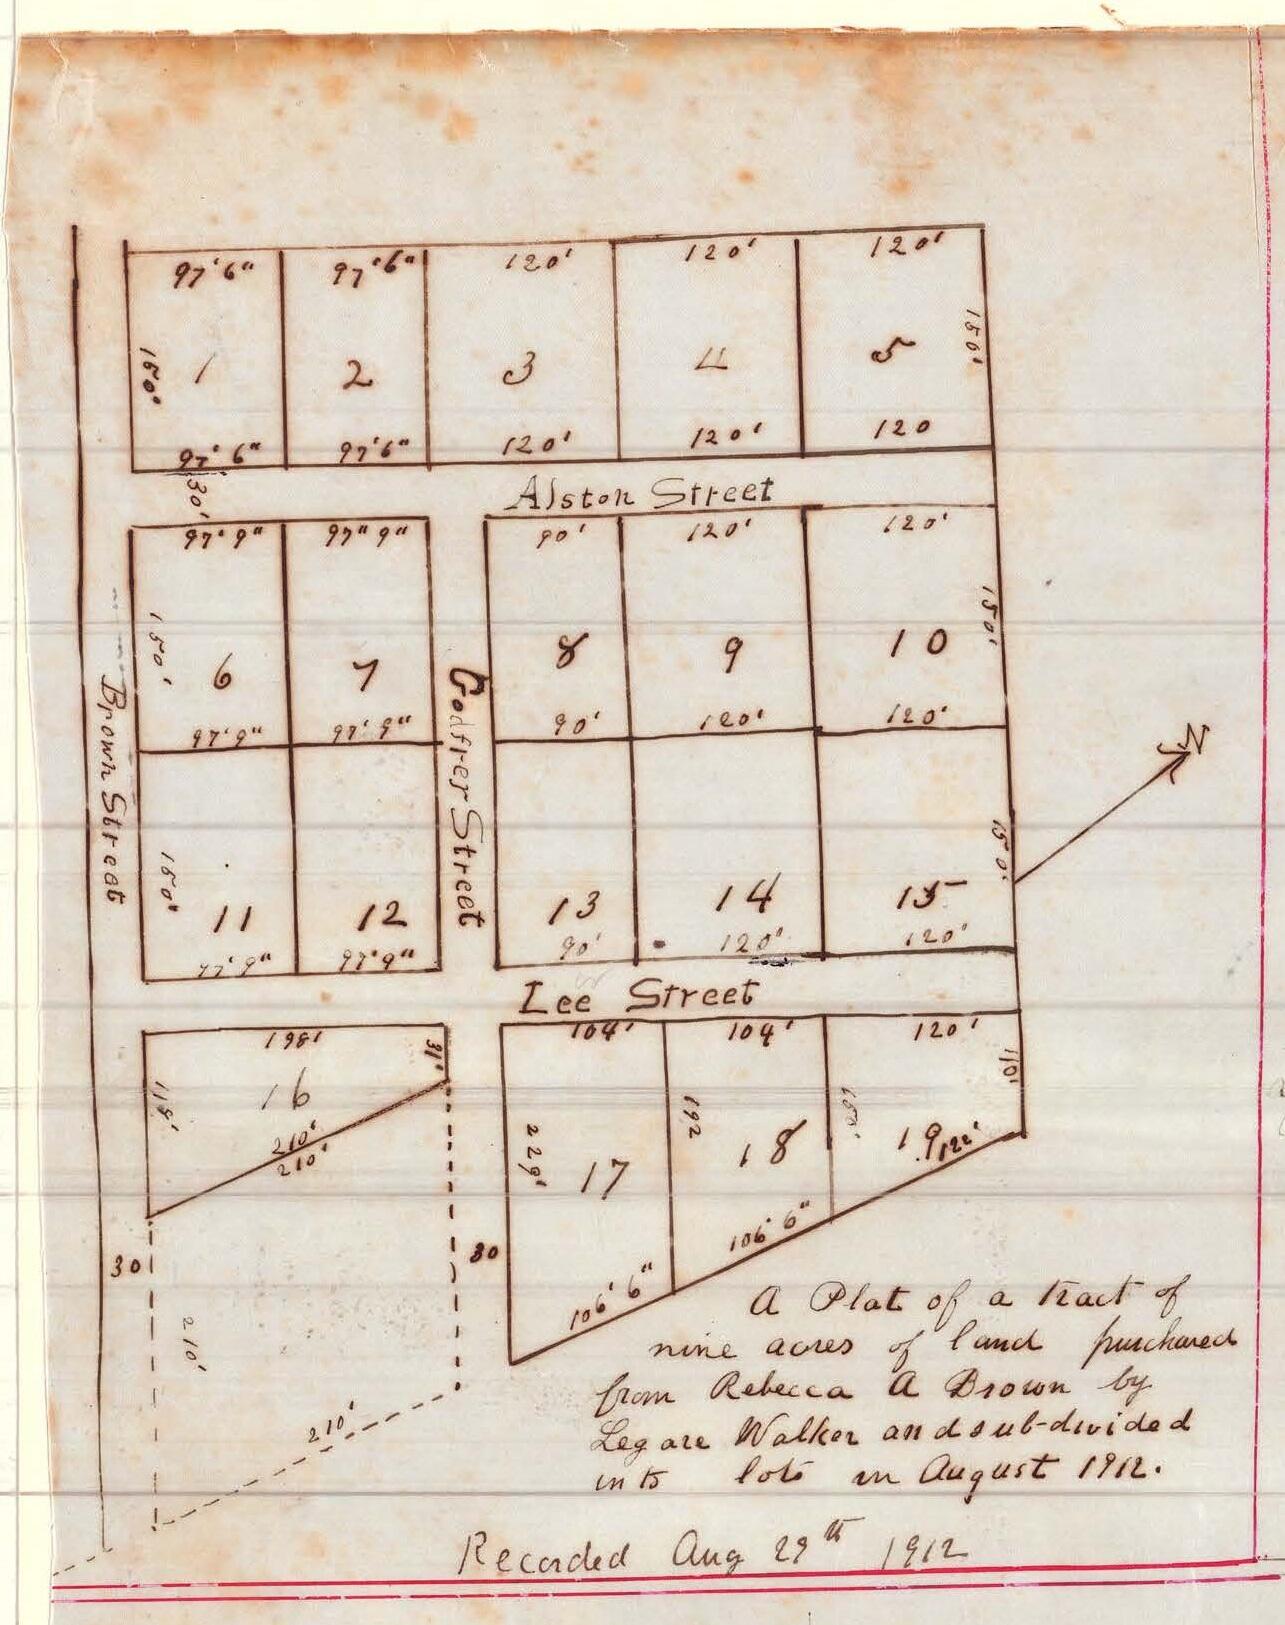 97'6" 97'6" 120' 120' 120'
150' 1 2 3 4 5 150'
97'6" 97'6" 120' 120' 120
30' Alston Street
97'9" 97"9" 90' 120' 120'
150' 6 7 8 9 10 150'
97'9" 97'9" 90' 120' 120'
Brown Street
Godfrer Street
150' 11 12 13 14 15 150'
97'9" 97'9" 90' 120' 120'
Lee Street
198' 31' 104' 104' 120' 110'
118' 16 229' 17 192 18 150' 19 122'
210'
210'
106'6" 106'6"
30 30
210'
210'
N
A Plat of a tract of
nine acres of land purchased
from Rebecca A Brown by
Legare Walker and sub-divided
into lots in August 1912.
Recorded Aug 29th 1912